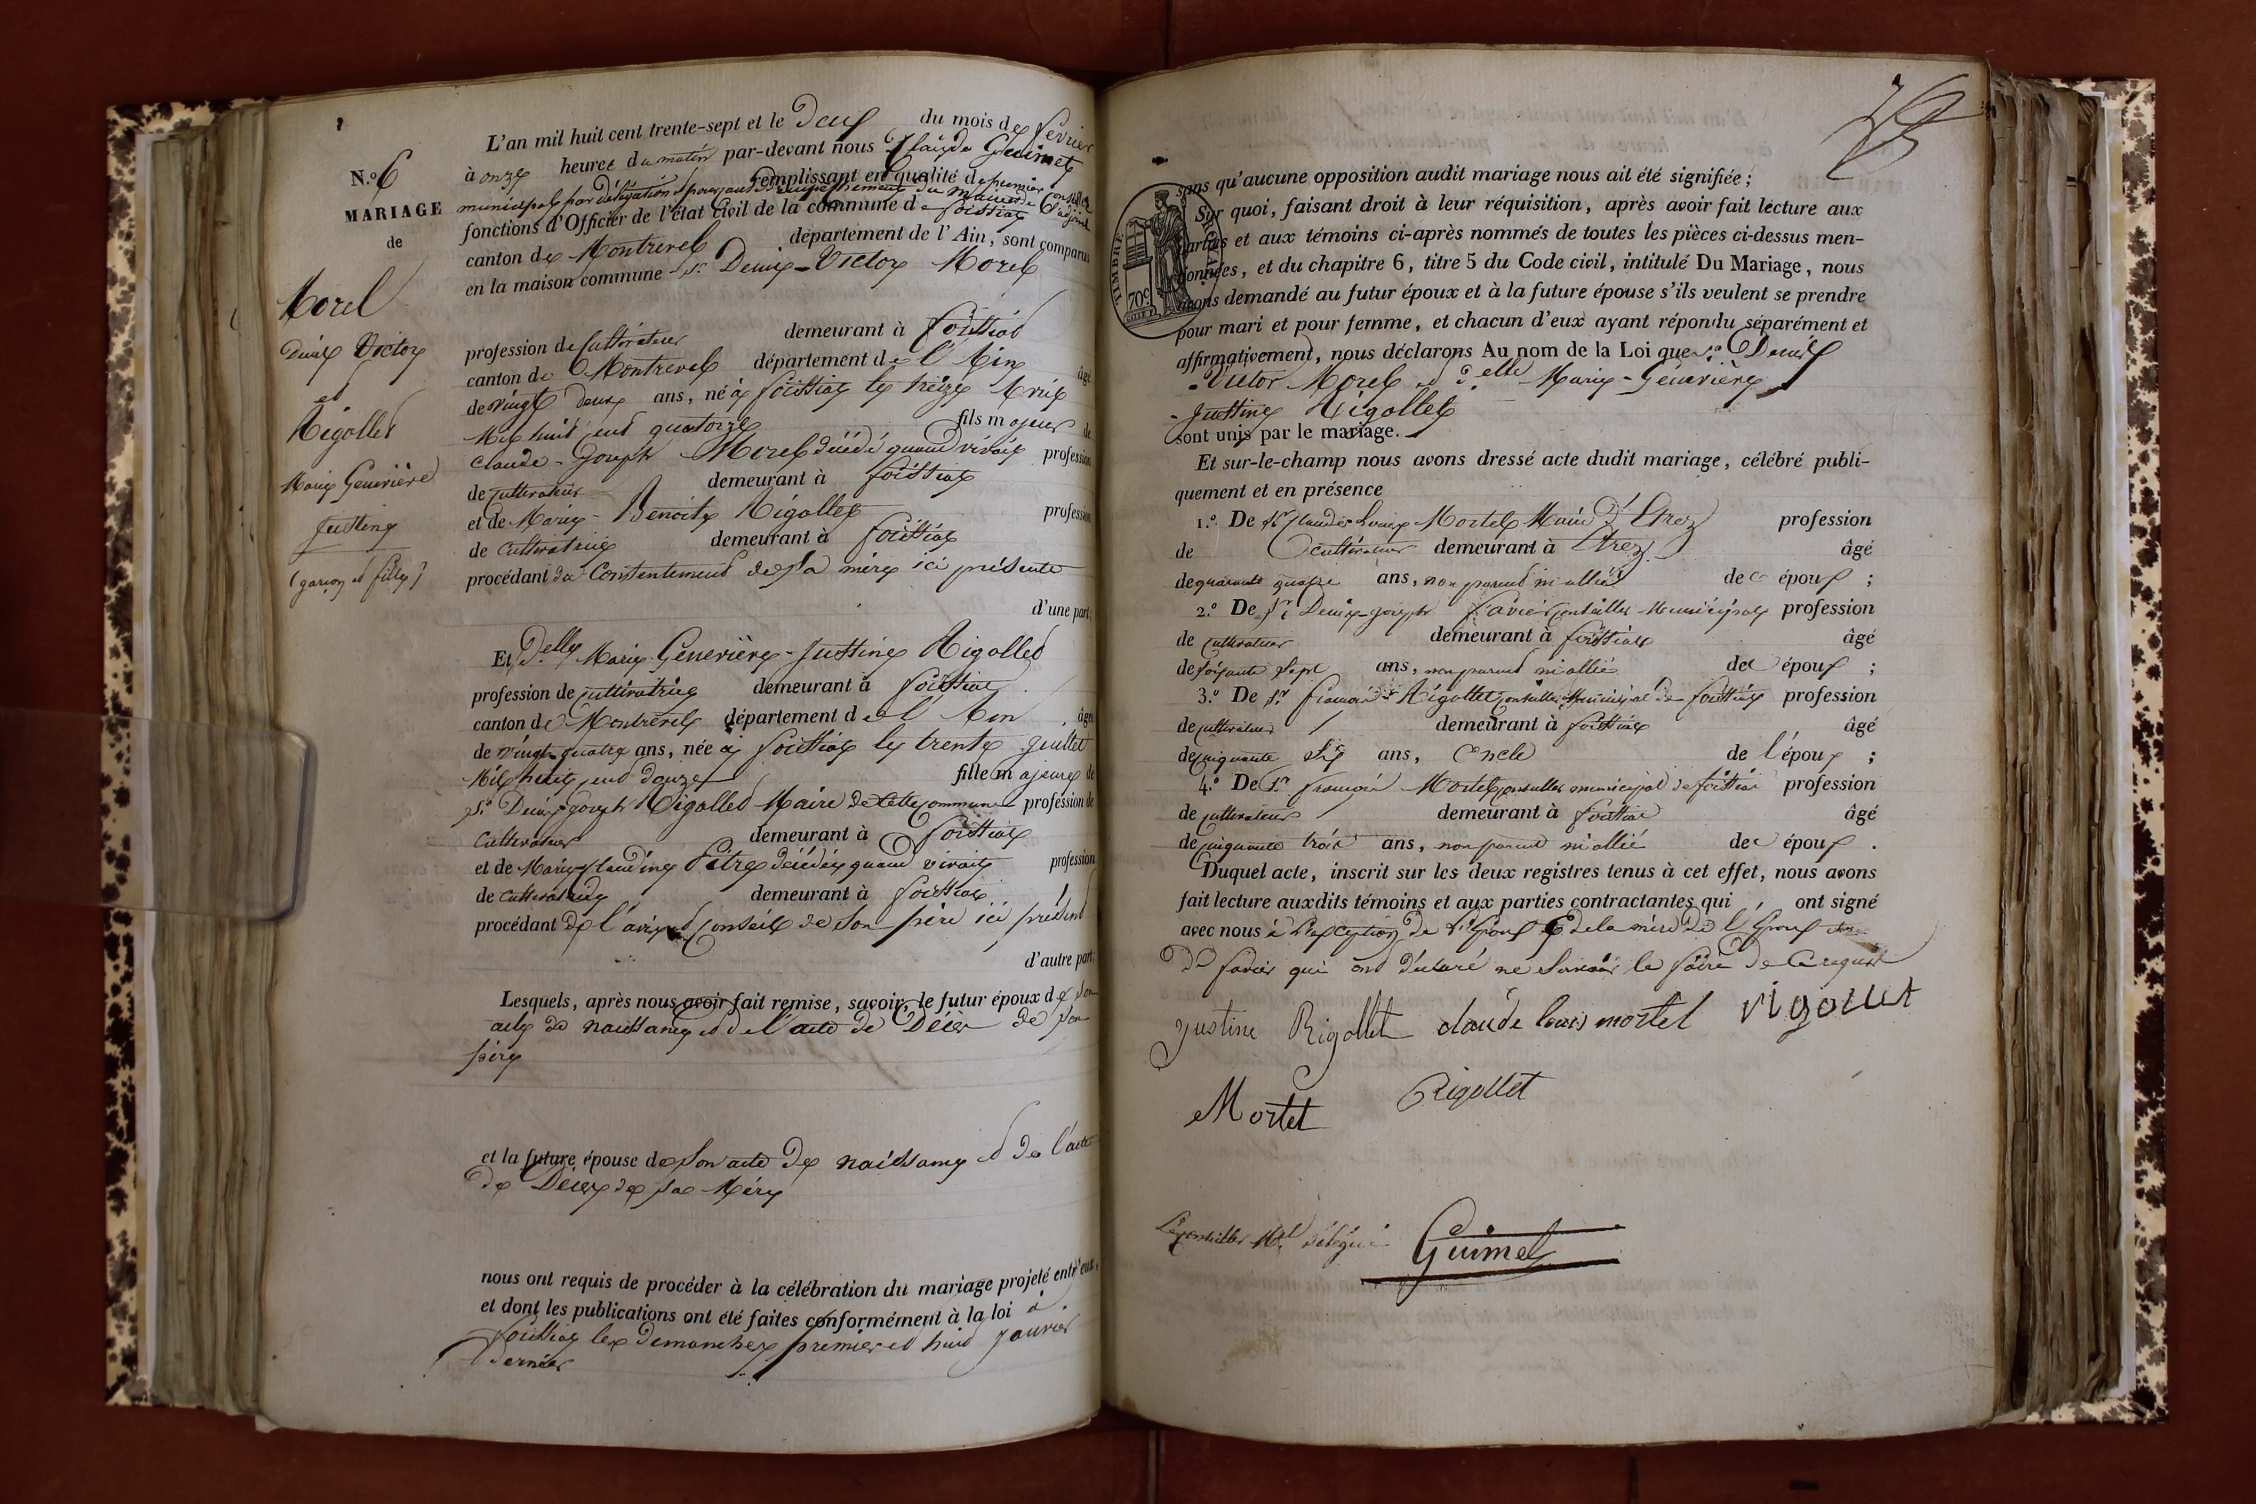 N.º 6
MARIAGE
de
Morel
Denis Victor
et
Rigollet
Marie Geneviève
Justine
(garçon et fille)
L'an mil huit cent trente-sept et le Deux du mois de février
à onze heures du matin par-devant nous Claude Guimet
remplissant en qualité de premier conseiller
municipal par délégation pour cause d'empêchement du maire et de l'adjoint
fonctions d'Officier de l'état civil de la commune de foissiat
canton de Montrevel département de l'Ain, sont comparus
en la maison commune Sr Denis-Victor Morel
profession de cultivateur demeurant à foissiat
canton de Montrevel département de l'Ain âgé
de vingt deux ans, né à foissiat le treize Avril
Mil huit cent quatorze fils majeur de
Claude-Joseph Morel décédé quand vivait profession
de cultivateur demeurant à foissiat
et de Marie-Benoite Rigollet profession
de cultivatrice demeurant à foissiat
procédant du Consentement de sa mère ici présente
d'une part;
Et Delle Marie Geneviève-Justine Rigollet
profession de cultivatrice demeurant à foissiat
canton de Montrevel département de l'Ain, âgée
de vingt-quatre ans, née à foissiat le trente Juillet
Mil huit cent douze fille majeure de
Sr Denis Joseph Rigollet Maire de cette commune profession de
cultivateur demeurant à foissiat
et de Marie Claudine Pitre décédée quand vivait profession
de cultivatrice demeurant à foissiat
procédant de l'avis et conseil de son père ici présent
d'autre part;
Lesquels, après nous avoir fait remise, savoir, le futur époux de son
acte de naissance et de l'acte de Décès de son
père
et la future épouse de son acte de naissance et de l'acte
de Décès de sa Mère
nous ont requis de procéder à la célébration du mariage projeté entr'eux,
et dont les publications ont été faites conformément à la loi à
foissiat les dimanches premier et huit janvier
dernier
TIMBRE ROYAL
70 c.
sans qu'aucune opposition audit mariage nous ait été signifiée;
Sur quoi, faisant droit à leur réquisition, après avoir fait lecture aux
parties et aux témoins ci-après nommés de toutes les pièces ci-dessus men-
tionnées, et du chapitre 6, titre 5 du Code civil, intitulé Du Mariage, nous
avons demandé au futur époux et à la future épouse s'ils veulent se prendre
pour mari et pour femme, et chacun d'eux ayant répondu séparément et
affirmativement, nous déclarons Au nom de la Loi que Sr Denis
Victor Morel et delle Marie-Geneviève
-Justine Rigollet
sont unis par le mariage.
Et sur-le-champ nous avons dressé acte dudit mariage, célébré publi-
quement et en présence
1.º De Sr Claude Louis Mortel Maire d'Etrez profession
de cultivateur demeurant à Etrez âgé
de quarante quatre ans, non parent ni allié des époux;
2.º De Sr Denis-Joseph favier conseiller Municipal profession
de cultivateur demeurant à foissiat âgé
de soixante sept ans, non parent ni allié des époux;
3.º De Sr françois Rigollet conseiller Municipal de foissiat profession
de cultivateur demeurant à foissiat âgé
de cinquante six ans, Oncle de l'époux;
4.º De Sr françois Mortel conseiller municipal de foissiat profession
de cultivateur demeurant à foissiat âgé
de cinquante trois ans, non parent ni allié des époux.
Duquel acte, inscrit sur les deux registres tenus à cet effet, nous avons
fait lecture auxdits témoins et aux parties contractantes qui ont signé
avec nous à l'exception de l'époux & de la mère de l'époux
favier qui ont déclaré ne savoir le faire de ce requis
Justine Rigollet claude louis mortel rigollet
Mortel Rigollet
Le conseiller Mal délégué Guimet